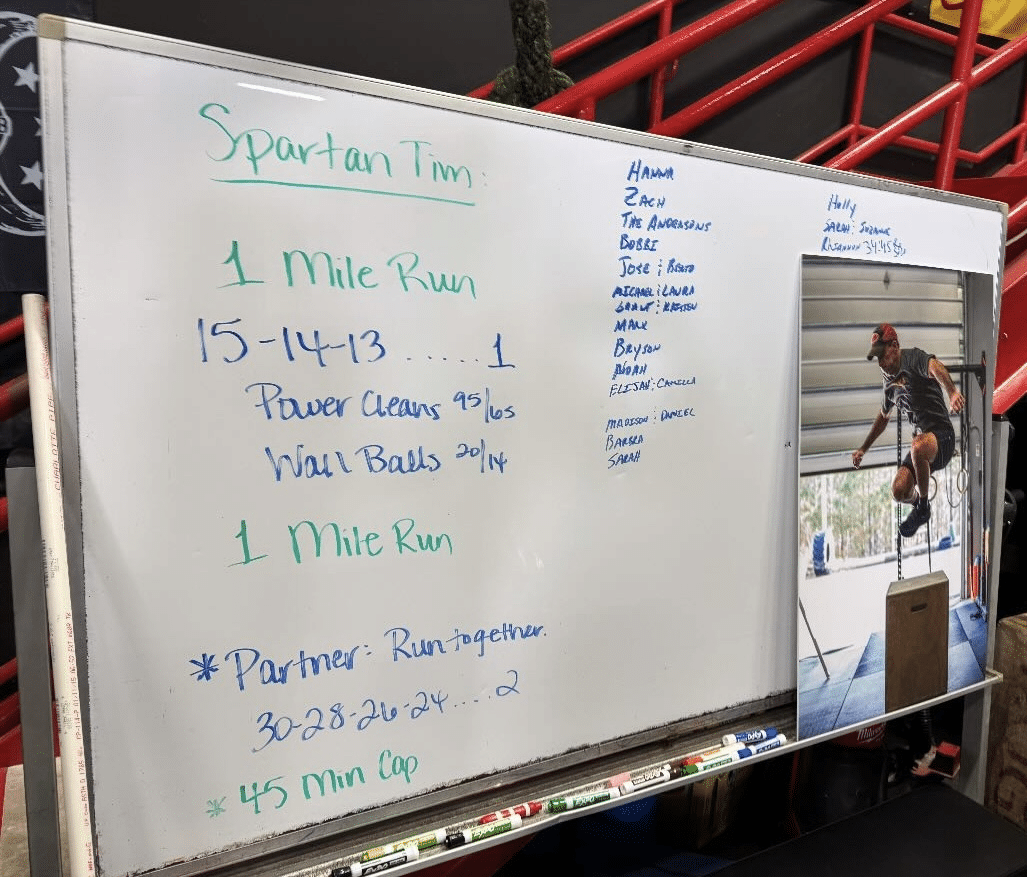 Spartan Tim:
1 Mile Run
15-14-13......1
Power Cleans 95/65
Wall Balls 20/14
1 Mile Run
* Partner: Run together.
30-28-26-24....2
* 45 Min Cap
Hanna
Zach
The Andersons
Bobbi
Jose &
Michael & Laura
Grant & Kristen
Mark
Bryson
Noah
Elijah & Camilla
Madison & Daniel
Barbra
Sarah
Holly
Sarah & Suzanne
Rhiannon 34:45
EXPO
EXPO
EXPO